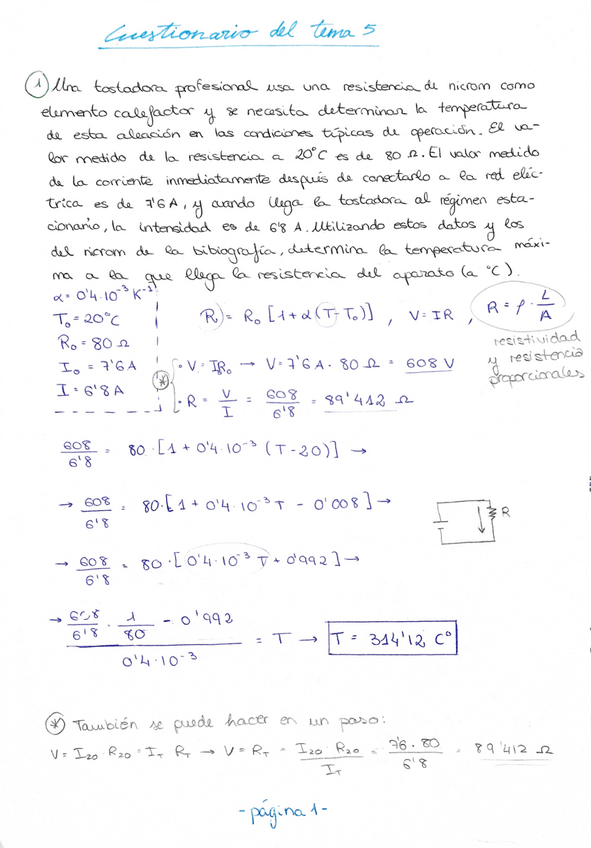 Cuestionario del tema 5
1 Una tostadora profesional usa una resistencia de nicrom como
elemento calefactor y se necesita determinar la temperatura
de esta aleación en las condiciones típicas de operación. El va-
lor medido de la resistencia a 20°C es de 80 Ω. El valor medido
de la corriente inmediatamente después de conectarlo a la red eléc-
trica es de 7'6 A, y cuando llega la tostadora al régimen esta-
cionario, la intensidad es de 6'8 A. Utilizando estos datos y los
del nicrom de la bibiografía, determina la temperatura máxi-
ma a la que llega la resistencia del aparato (a °C).
α = 0'4·10⁻³ K⁻¹
T₀ = 20°C
R₀ = 80 Ω
I₀ = 7'6 A
I = 6'8 A
R = R₀ [1 + α (T - T₀)] , V = IR , R = ρ · L/A
resistividad
y resistencia
proporcionales
* · V = IR₀ → V = 7'6 A · 80 Ω = 608 V
· R = V/I = 608/6'8 = 89'412 Ω
608/6'8 = 80 · [1 + 0'4·10⁻³ (T - 20)] →
→ 608/6'8 = 80 · [1 + 0'4·10⁻³ T - 0'008] →
R
→ 608/6'8 = 80 · [0'4·10⁻³ T + 0'992] →
→ (608/6'8 · 1/80 - 0'992)/(0'4·10⁻³) = T → T = 314'12 C°
* También se puede hacer en un paso:
V = I₂₀ · R₂₀ = I_T R_T → V = R_T = (I₂₀ R₂₀)/I_T = (7'6 · 80)/6'8 = 89'412 Ω
- página 1 -